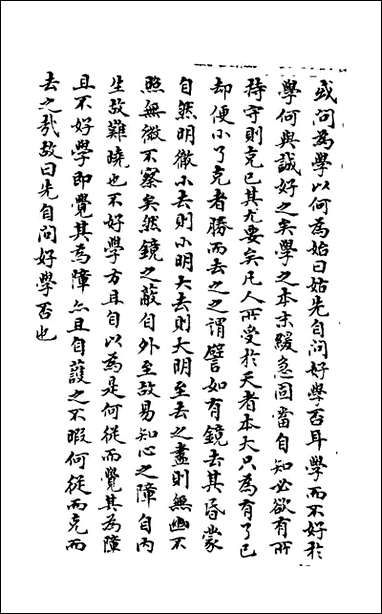 或問為學以何為始曰姑先自問好學否耳學而不好於
學何與誠好之矣學之本末緩急固當自知必欲有所
持守則克已其尤要矣凡人所受於天者本大只為有了已
却便小了克者勝而去之之謂譬如有鏡去其昏蒙
自然明徹小去則小明大去則大明至去之盡則無幽不
照無微不察矣然鏡之蔽自外至故易知心之障自內
生故難曉也不好學方且自以為是何從而覺其為障
且不好學即覺其為障亦且自護之不暇何從而克而
去之哉故曰先自問好學否也